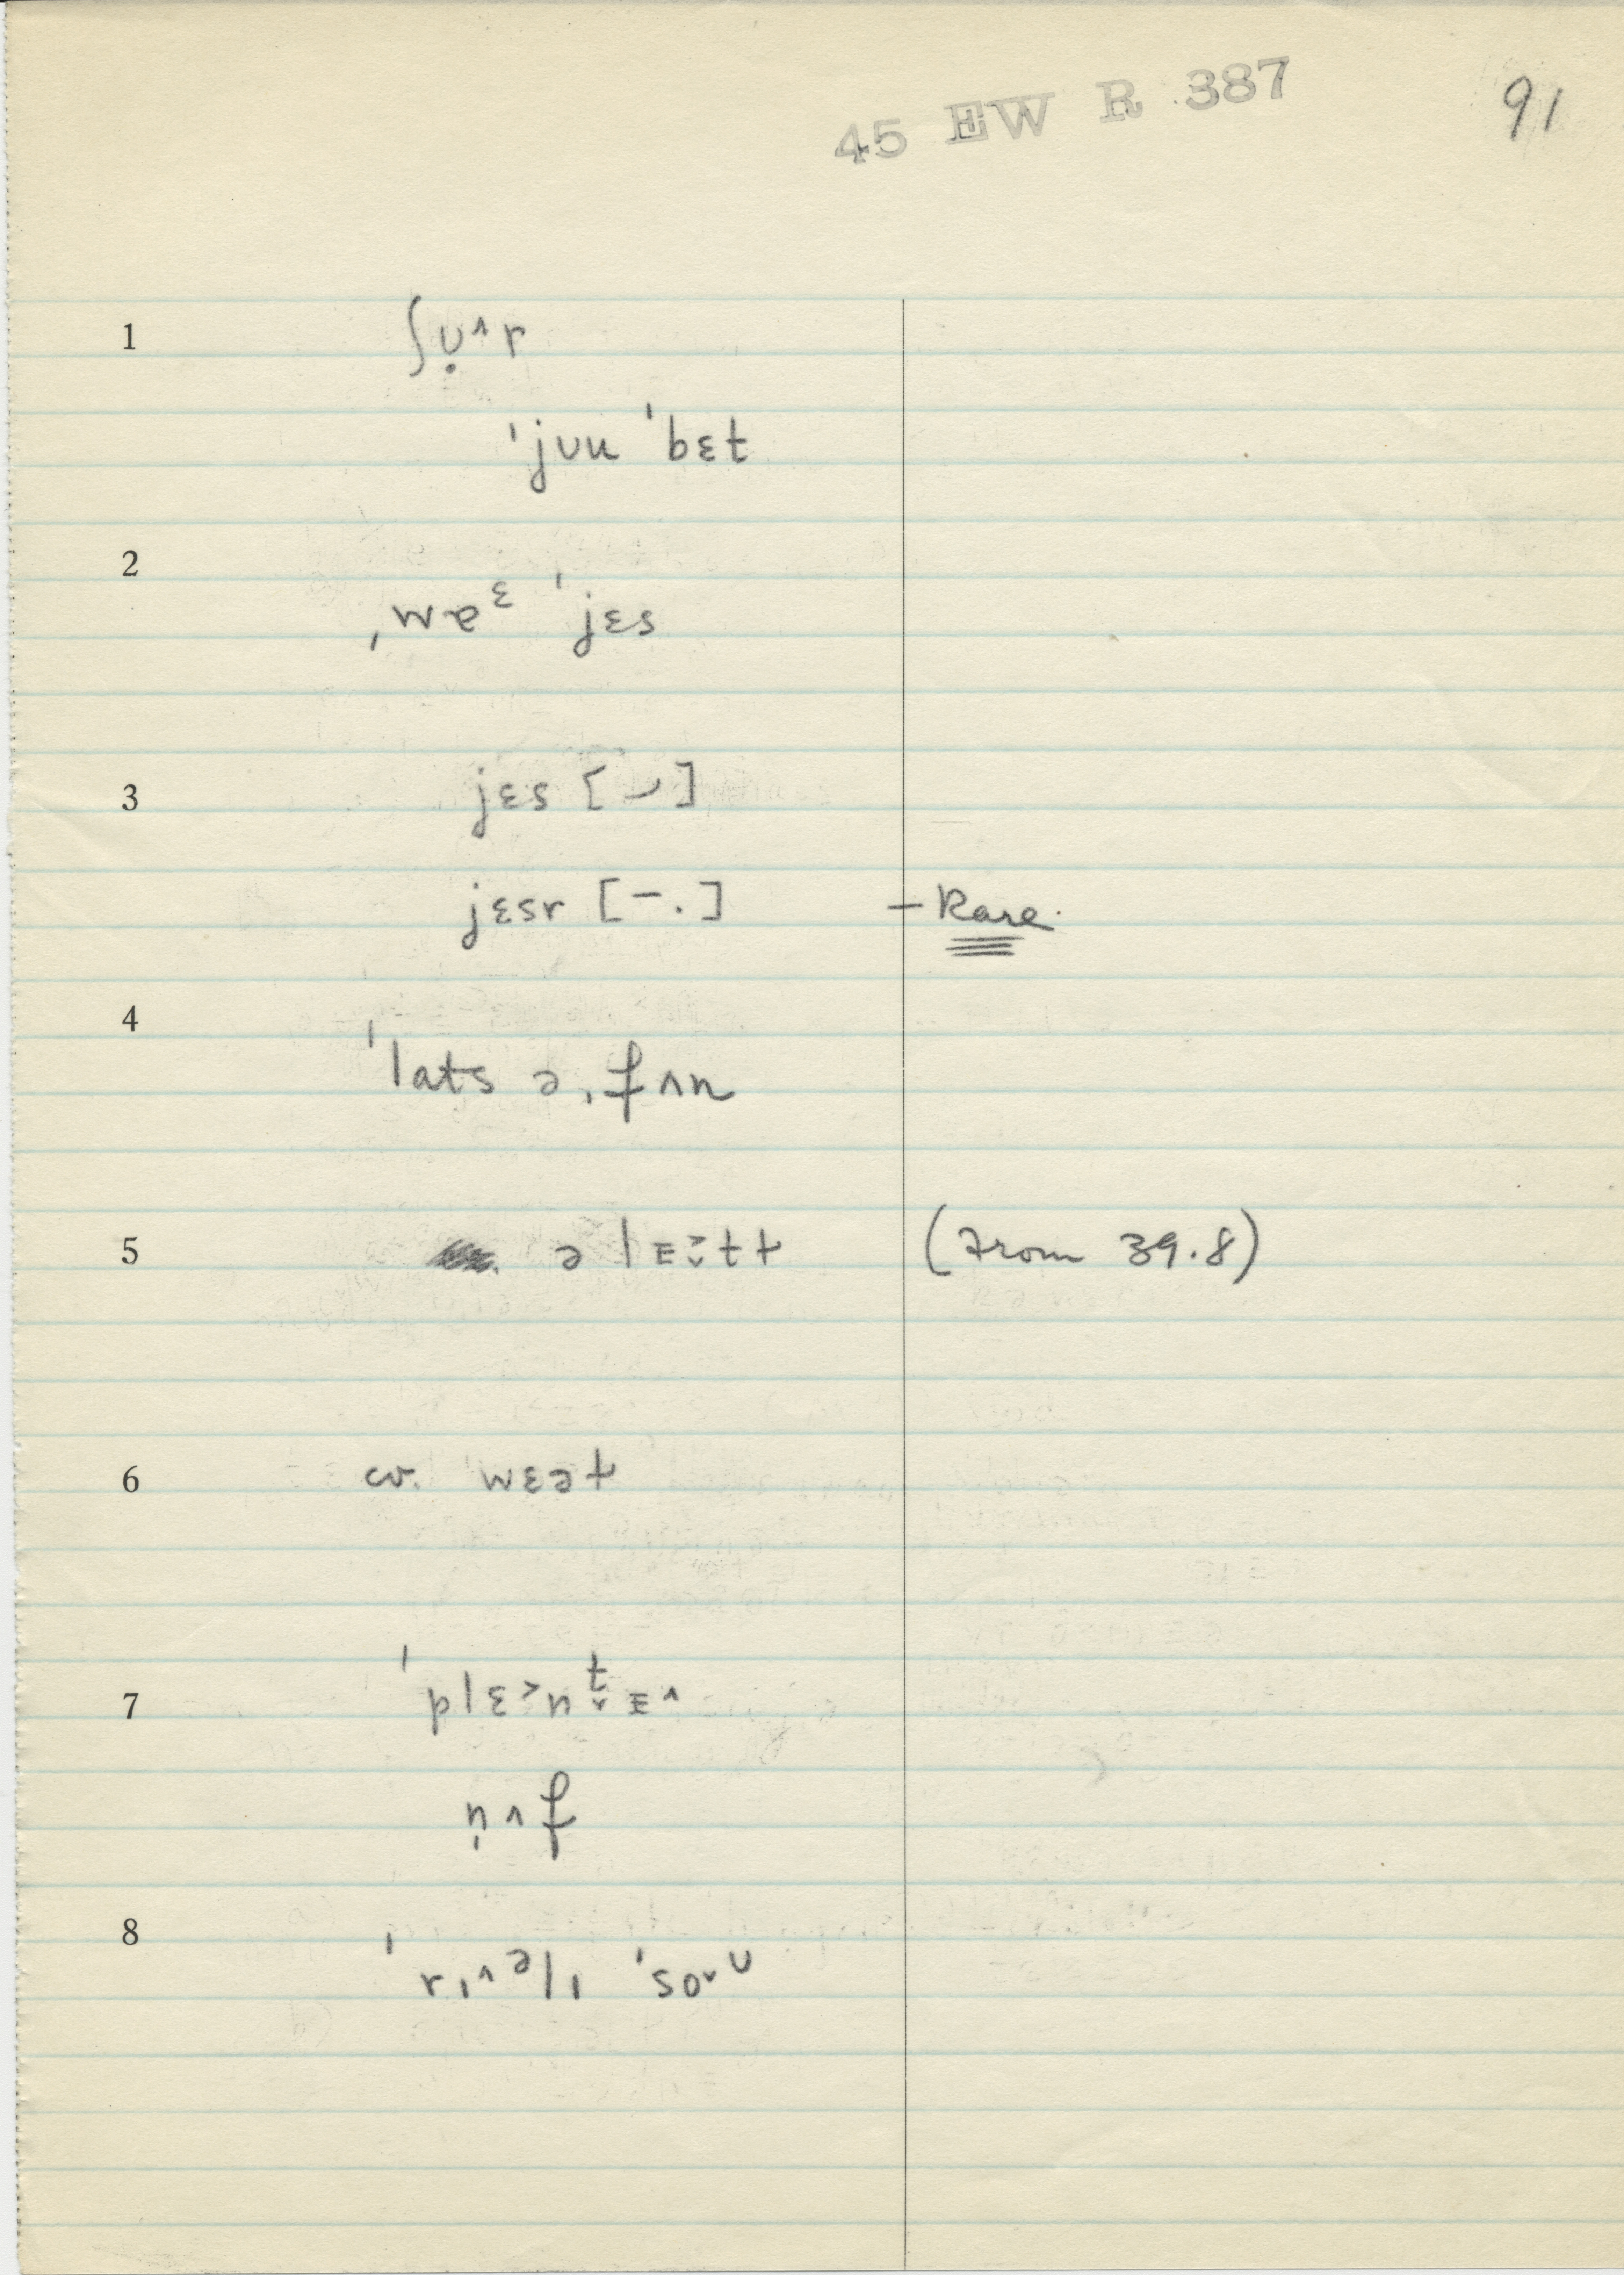 45 EW R 387
91
1 ʃʊ̣^r
ˈjuu ˈbɛt
2 ˌwæᵋ ˈjɛs
3 jɛs [ ⌣ ]
jɛsr [ – . ] – Rare.
4 ˈlats ə ˌfʌn
5 ə l ɪ t t (From 39.8)
6 cv. wɛət
7 ˈplɛ˃nᵗɪ^
nʌf
8 ˈrɪ^əlɪ ˈsoᵘ